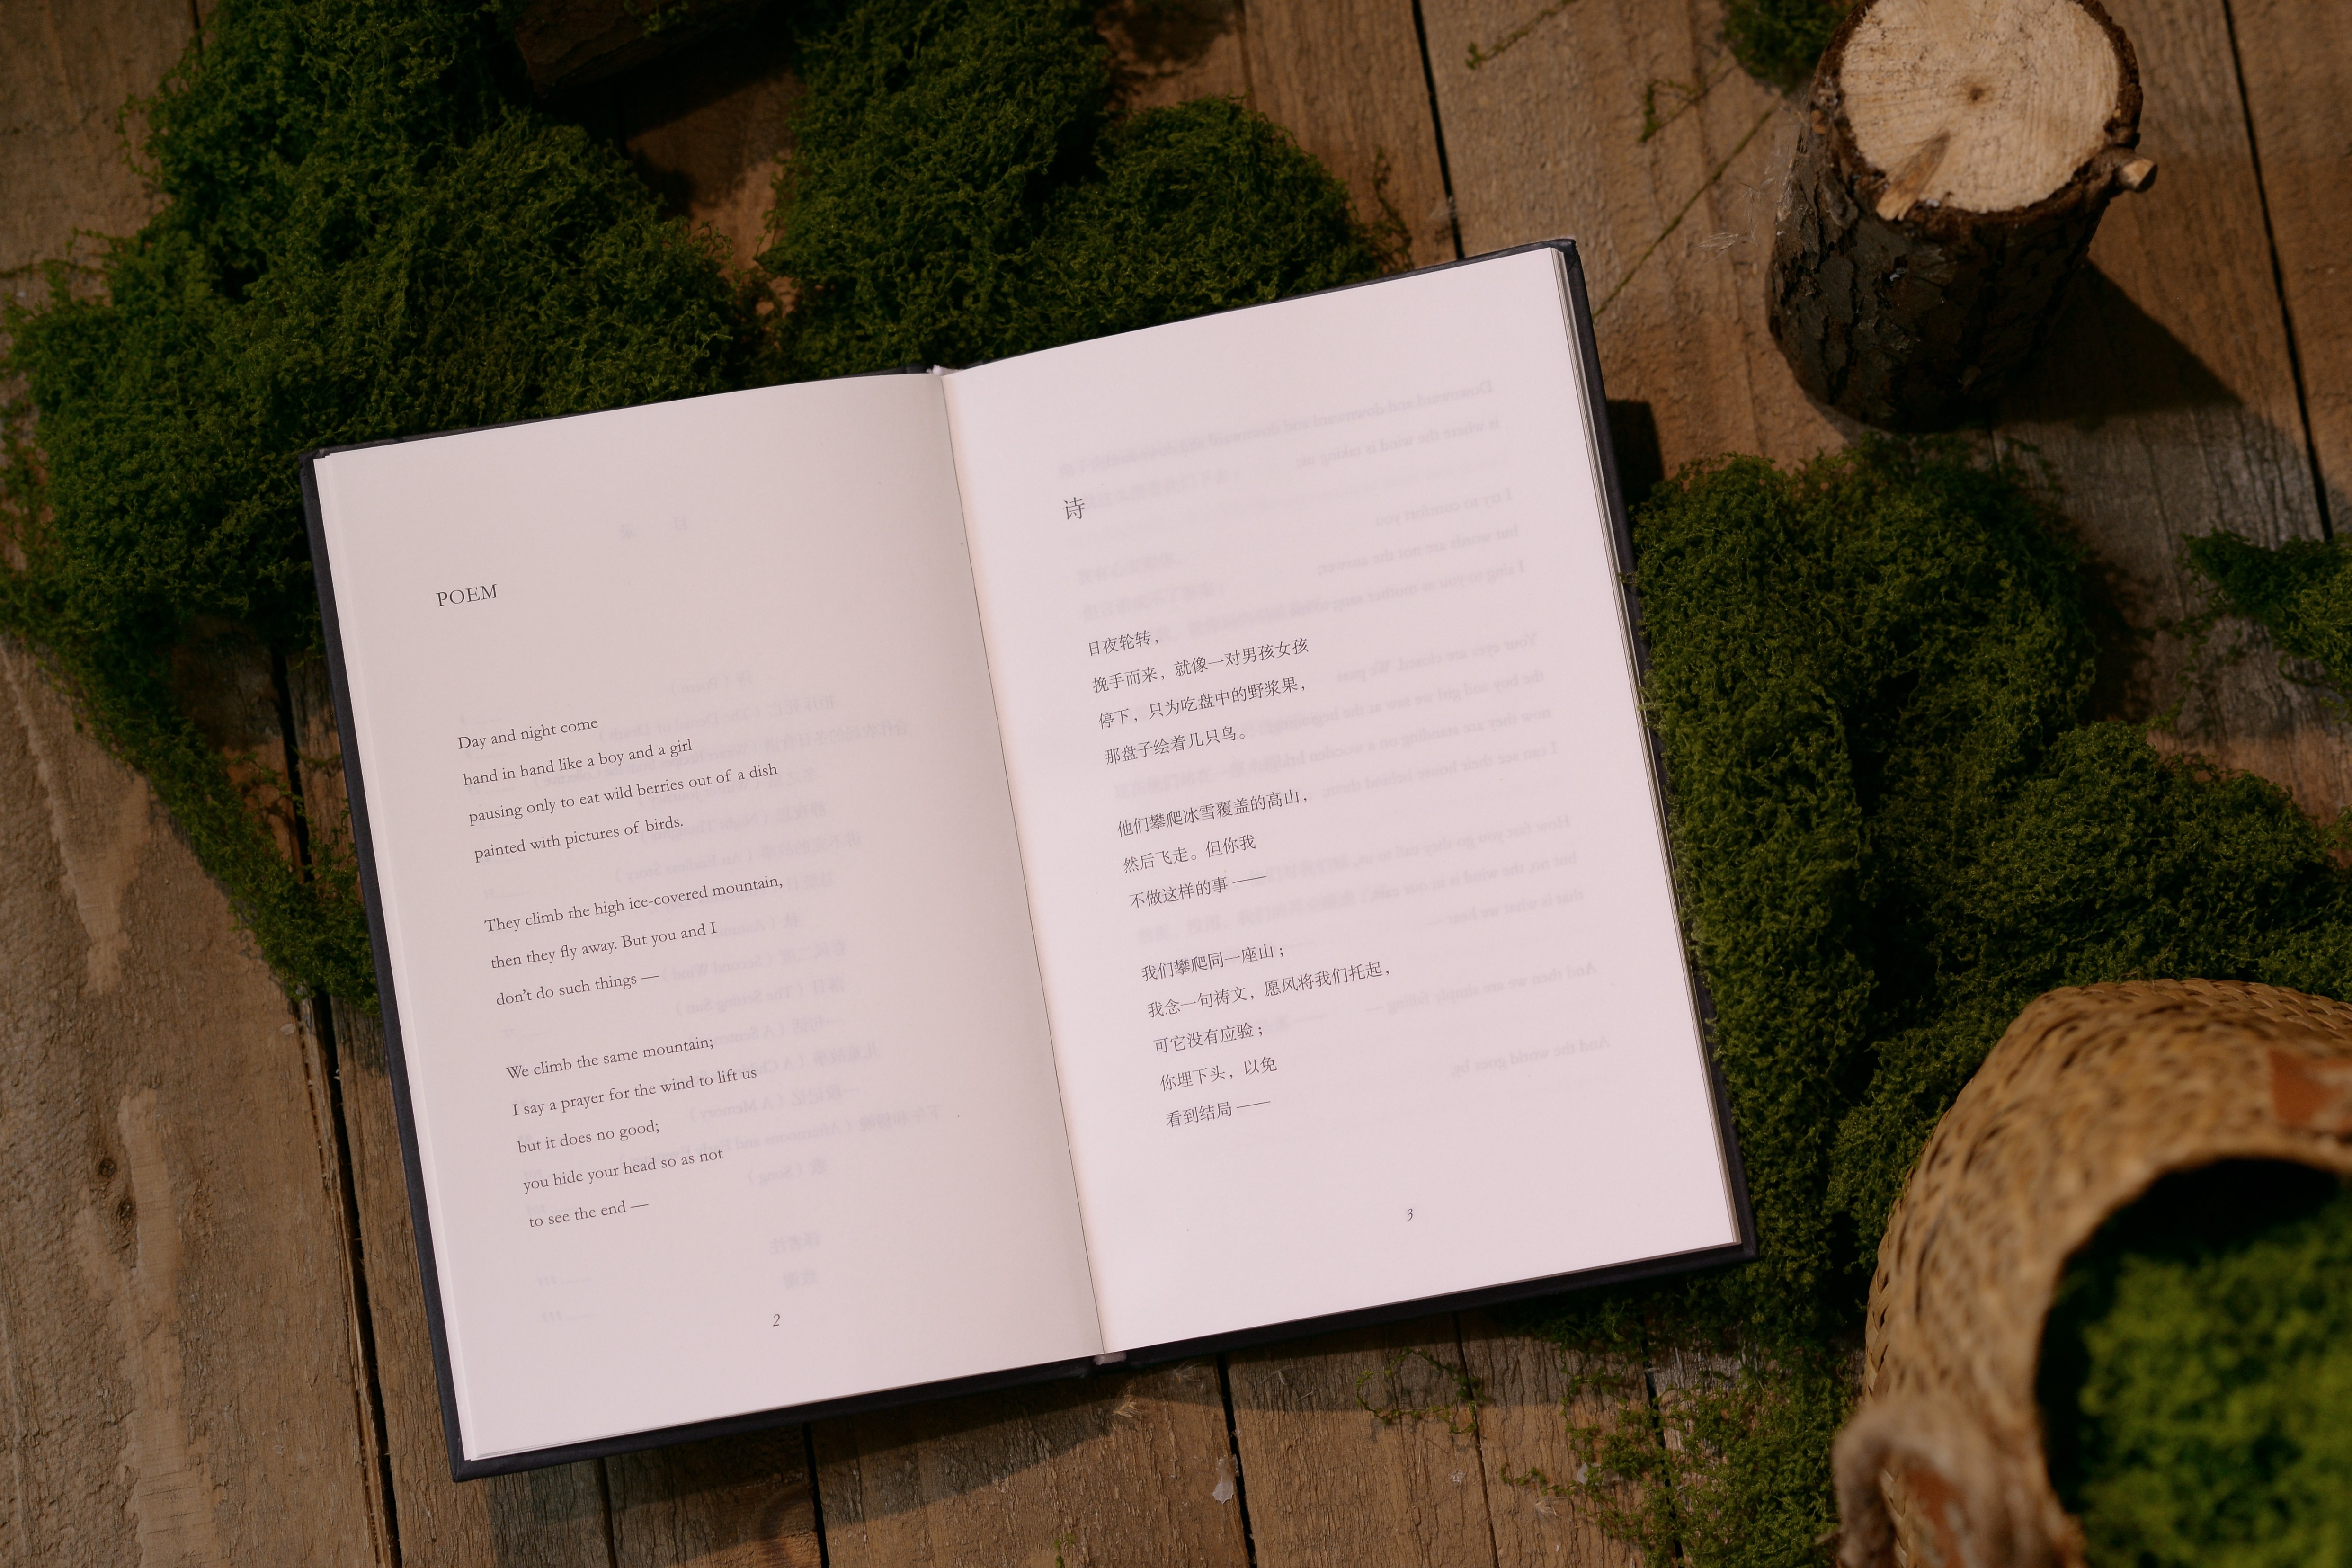 POEM
Day and night come
hand in hand like a boy and a girl
pausing only to eat wild berries out of a dish
painted with pictures of birds.
They climb the high ice-covered mountain,
then they fly away. But you and I
don't do such things —
We climb the same mountain;
I say a prayer for the wind to lift us
but it does no good;
you hide your head so as not
to see the end —
2
诗
日夜轮转，
挽手而来，就像一对男孩女孩
停下，只为吃盘中的野浆果，
那盘子绘着几只鸟。
他们攀爬冰雪覆盖的高山，
然后飞走。但你我
不做这样的事 ——
我们攀爬同一座山；
我念一句祷文，愿风将我们托起，
可它没有应验；
你埋下头，以免
看到结局 ——
3